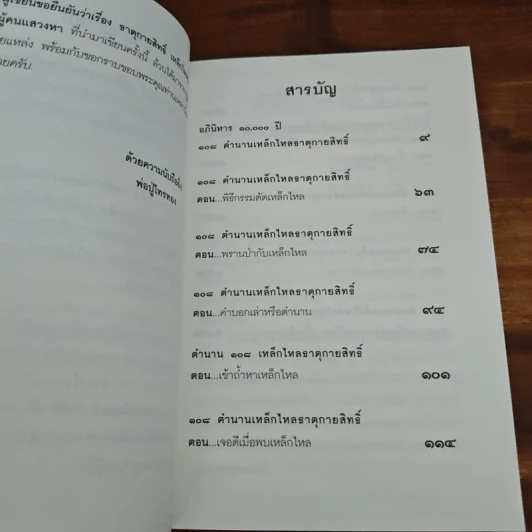 ผู้เขียนขอยืนยันว่าเรื่อง ธาตุกายสิทธิ์ เหล็กไหล
ผู้คนแสวงหา ที่นำมาเขียนครั้งนี้ ล้วนได้มาจาก
แหล่ง พร้อมกับขอกราบขอบพระคุณท่าน
ด้วยครับ
ด้วยความนับถือยิ่ง
พ่อปู่ไทรทอง
สารบัญ
อภินิหาร ๑๐,๐๐๐ ปี
๑๐๘ ตำนานเหล็กไหลธาตุกายสิทธิ์ ๙
๑๐๘ ตำนานเหล็กไหลธาตุกายสิทธิ์
ตอน...พิธีกรรมตัดเหล็กไหล ๖๓
๑๐๘ ตำนานเหล็กไหลธาตุกายสิทธิ์
ตอน...พรานป่ากับเหล็กไหล ๗๔
๑๐๘ ตำนานเหล็กไหลธาตุกายสิทธิ์
ตอน...คำบอกเล่าหรือตำนาน ๙๔
ตำนาน ๑๐๘ เหล็กไหลธาตุกายสิทธิ์
ตอน...เข้าถ้ำหาเหล็กไหล ๑๐๑
๑๐๘ ตำนานเหล็กไหลธาตุกายสิทธิ์
ตอน...เจอดีเมื่อพบเหล็กไหล ๑๑๔